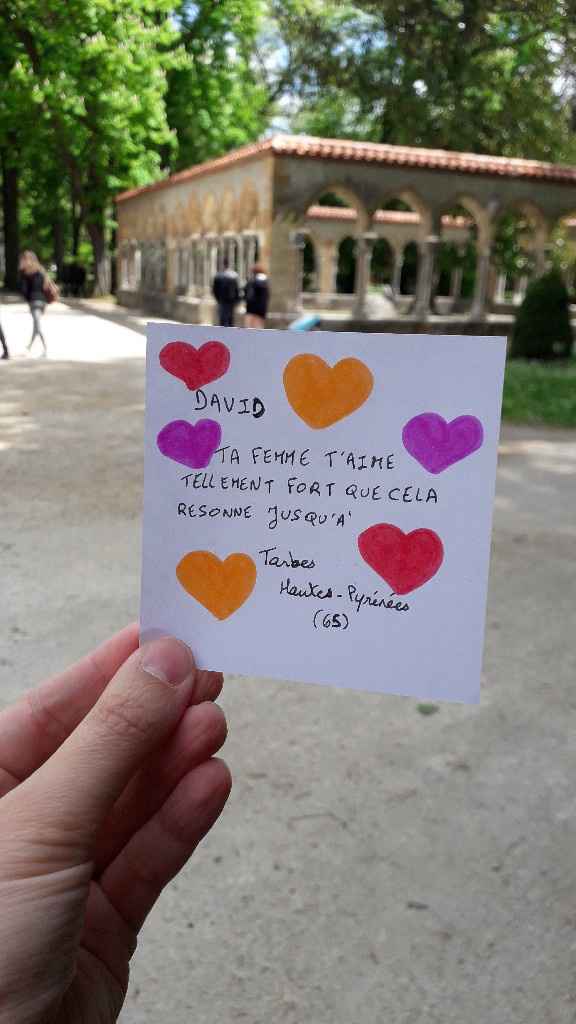 DAVID
TA FEMME T'AIME
TELLEMENT FORT QUE CELA
RESONNE JUSQU'A'
Tarbes
Hautes-Pyrénées
(65)